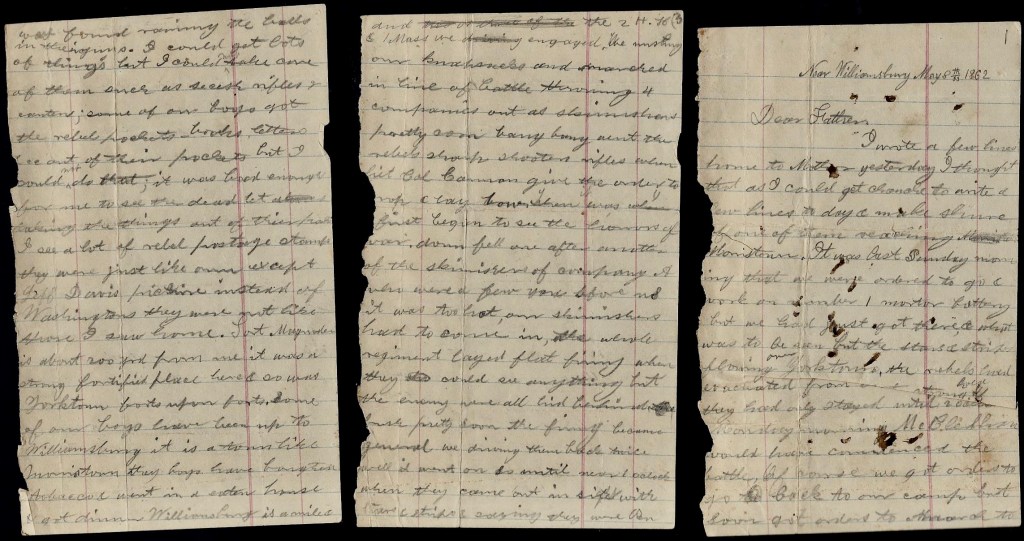 was found ramming the balls
in their guns. I could get lots
of things but I could take care
of them such as secesh rifles &
canteen; some of our boys got
the rebel pockets books letters
&c out of their pockets but I
could not do that, it was bad enough
for me to see the dead let alone
taking the things out of their
I see a lot of rebel postage stamps
they were just like ours except
Jeff Davis picture instead of
Washingtons they were not like
those I saw home. Fort Magruder
is about 200 yrd from me it was a
strong fortified place here & so was
Yorktown forts upon forts, some
of our boys have been up to
Williamsburg it is a town like
Morristown they boys have bought
tobacco & went in a eaten house
& got dinner Williamsburg is a miles
and the 2 N. H. (3
& 1 Mass we engaged. We unslung
our knapsacks and marched
in line of battle throwing 4
companies out as skirmishers
pretty soon bang bang went the
rebels sharp shooters rifles when
Col Cannon give the order to
drop & lay low, then was when
first begun to see the horrors of
war, down fell one after another
of the skirmishers of company A
who were a few yds before us
it was too hot, our skirmishers
had to come in, the whole
regiment layed flat firing when
they could see anything but
the enemy were all hid behind
bush pretty soon the firing became
general we driving them back twice
well it went on so until near 1 oclock
when they came out in sight with
Stars & stripes saying they were Pen
1
Near Williamsburg May 8th 1862
Dear Father
I wrote a few lines
home to Mother yesterday I thought
that as I could get chance to write a
few lines to day & make shure
of one of them reaching
Morristown. It was last Sunday morn
ing that we were ordered to go &
work on number 1 mortor battery
but we had just got there & what
was to be seen but the stars & strip
flowing over Yorktown, the rebels had
evacuated from
they had only stayed until
Monday morning McClellan
would have commenced the
battle, Of course we got orders to
go back to our camp but
soon got orders to March to